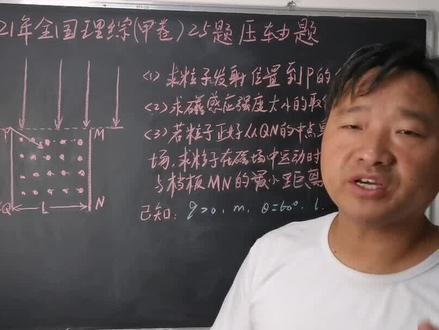 21年全国理综(甲卷)25题压轴题
<1>求粒子发射位置到P的
<2>求磁感应强度大小的取
<3>若粒子正好从QN的中点
场,求粒子在磁场中运动时
与档板MN的最小距离
已知: q>0, m, θ=60°, l.
M
Q L N